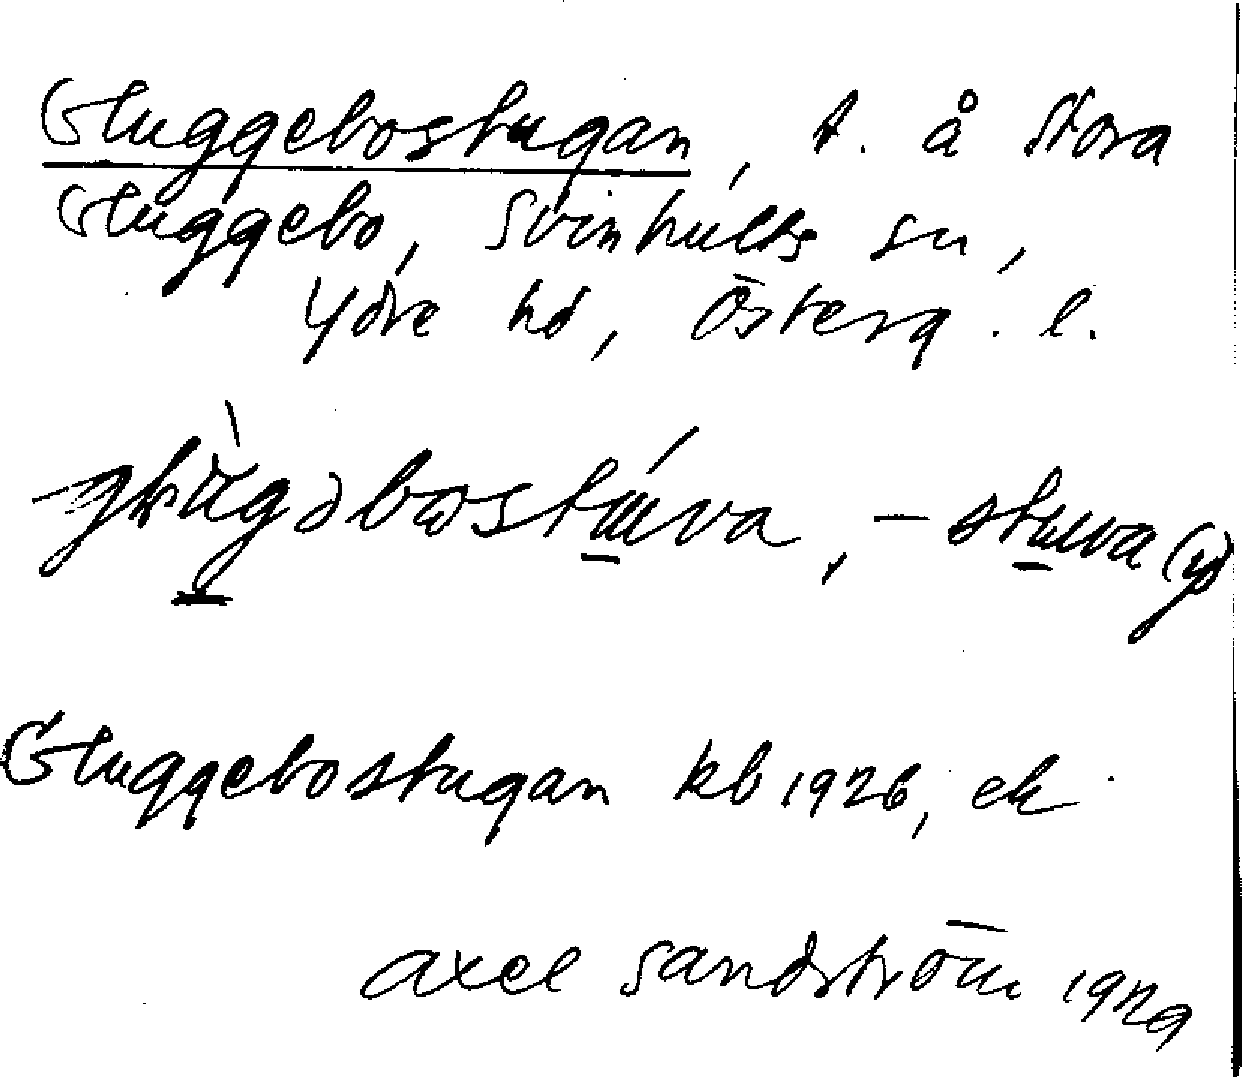 Gluggebostugan, t. å Stora
Gluggebo, Svinhults sn,
Ydre hd, Österg. l.
-stuva
Gluggebostugan kb 1926, ek
Axel Sandström 1929